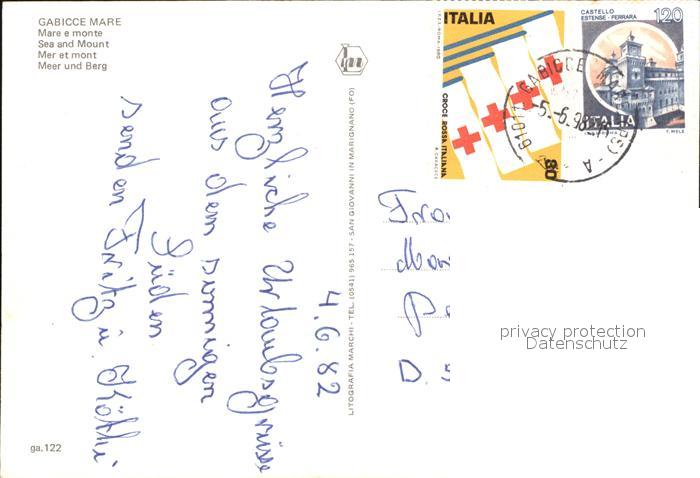 GABICCE MARE
Mare e monte
Sea and Mount
Mer et mont
Meer und Berg
4.6.82
Herzliche Urlaubsgrüsse
aus dem sonnigen
Süden
senden Fritz u. Käthi
ga.122
LITOGRAFIA MARCHI - TEL. (0541) 965.157 - SAN GIOVANNI IN MARIGNANO (FO)
ITALIA
CROCE ROSSA ITALIANA
80
CASTELLO
ESTENSE - FERRARA
120
ITALIA
61011 GABICCE
-5.-6.
privacy protection
Datenschutz
D.